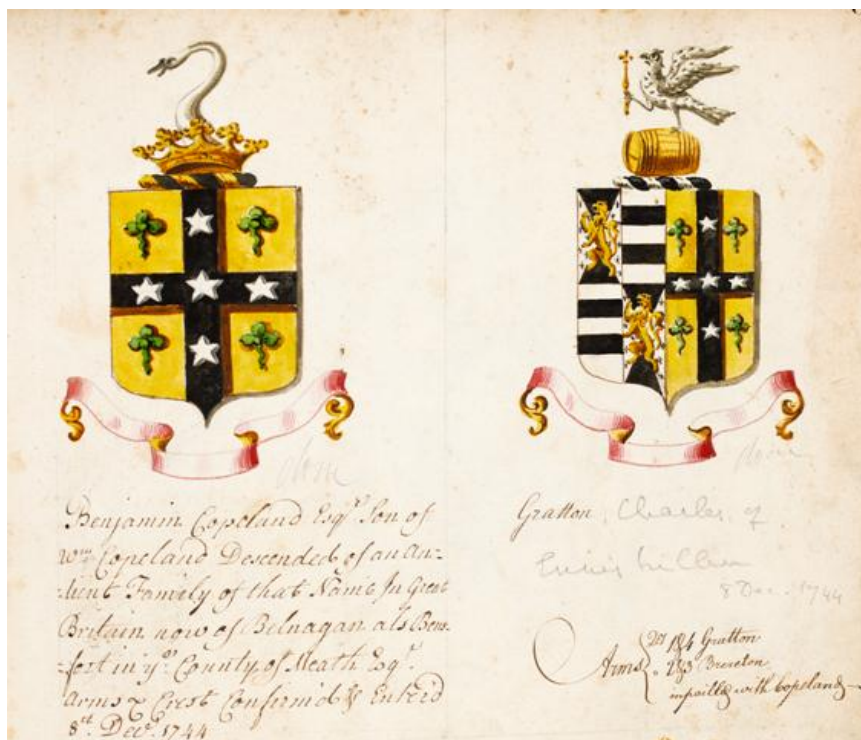 done
Benjamin Copeland Esqr. Son of
Wm. Copeland Descended of an An-
-tient Family of that Name In Great
Britain now of Belnagan als Bens-
-fort in ye. County of Meath Esqr.
Arms & Crest Confirm'd & Enter'd
8th. Decr. 1744
done
Gratton, Charles, of
8 Dec. 1744
Arms 1&4 Gratton
2&3 Brereton
impailed with Copeland